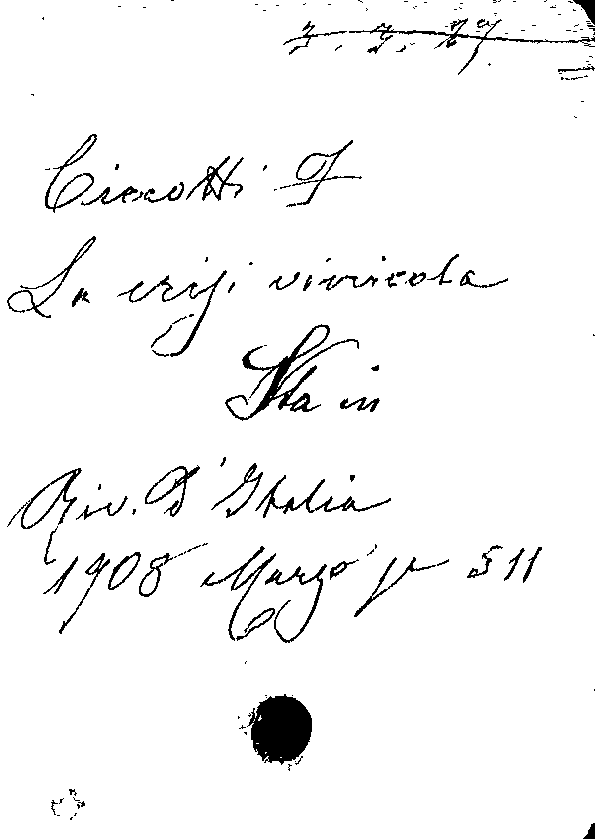 3. 3. 27
Ciccotti F
La crisi vinicola
Sta in
Riv. D'Italia
1908 Marzo p 511